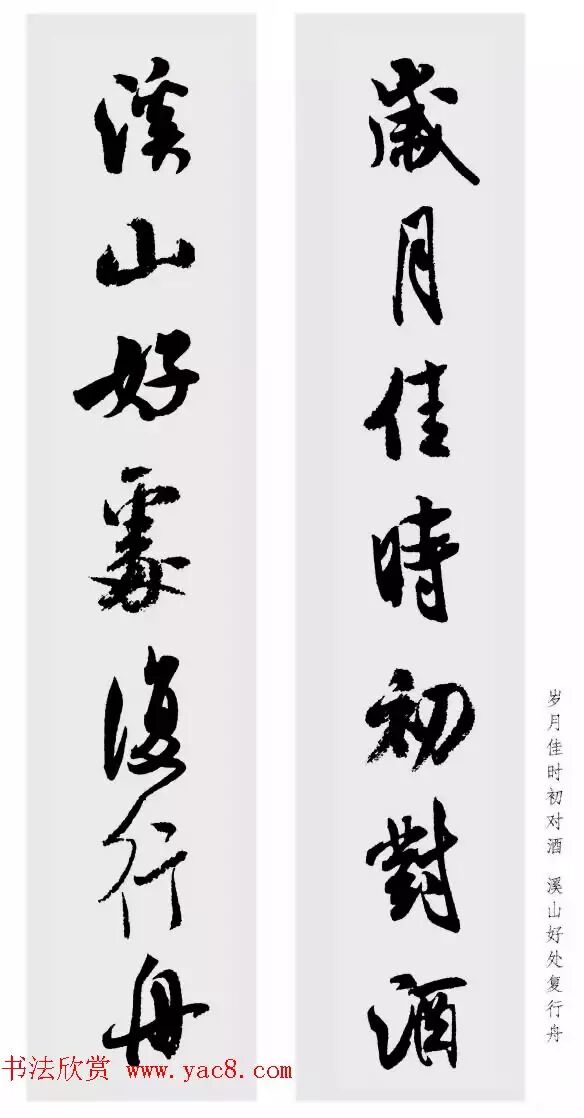 歲月佳時初對酒
溪山好處復行舟
岁月佳时初对酒 溪山好处复行舟
书法欣赏 www.yac8.com